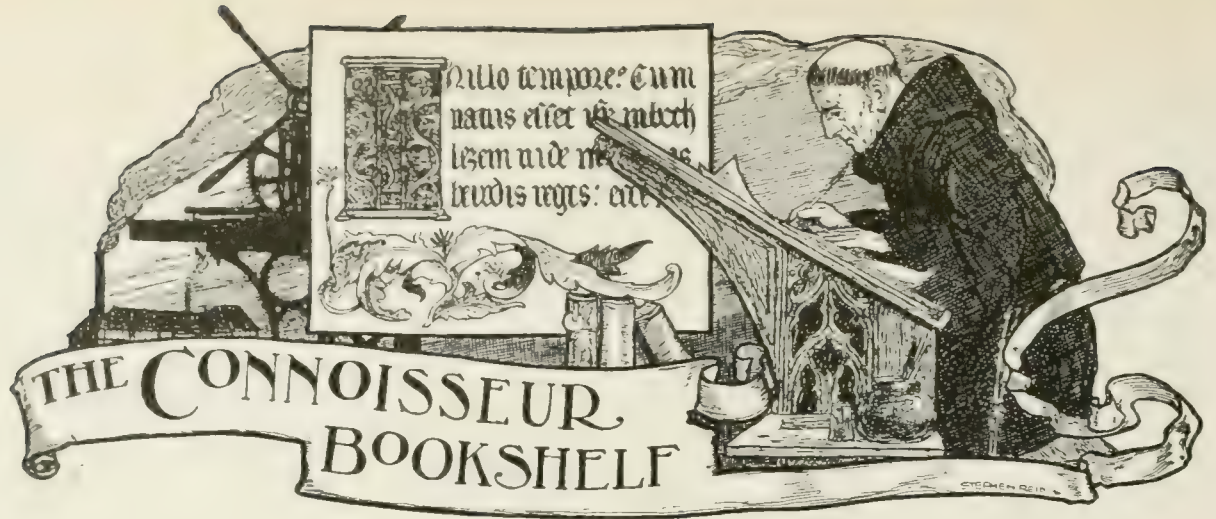 IN illo tempore: Cum
natus esset inbeth
lezem iude
herodis regis:
THE CONNOISSEUR
BOOKSHELF
STEPHEN REID